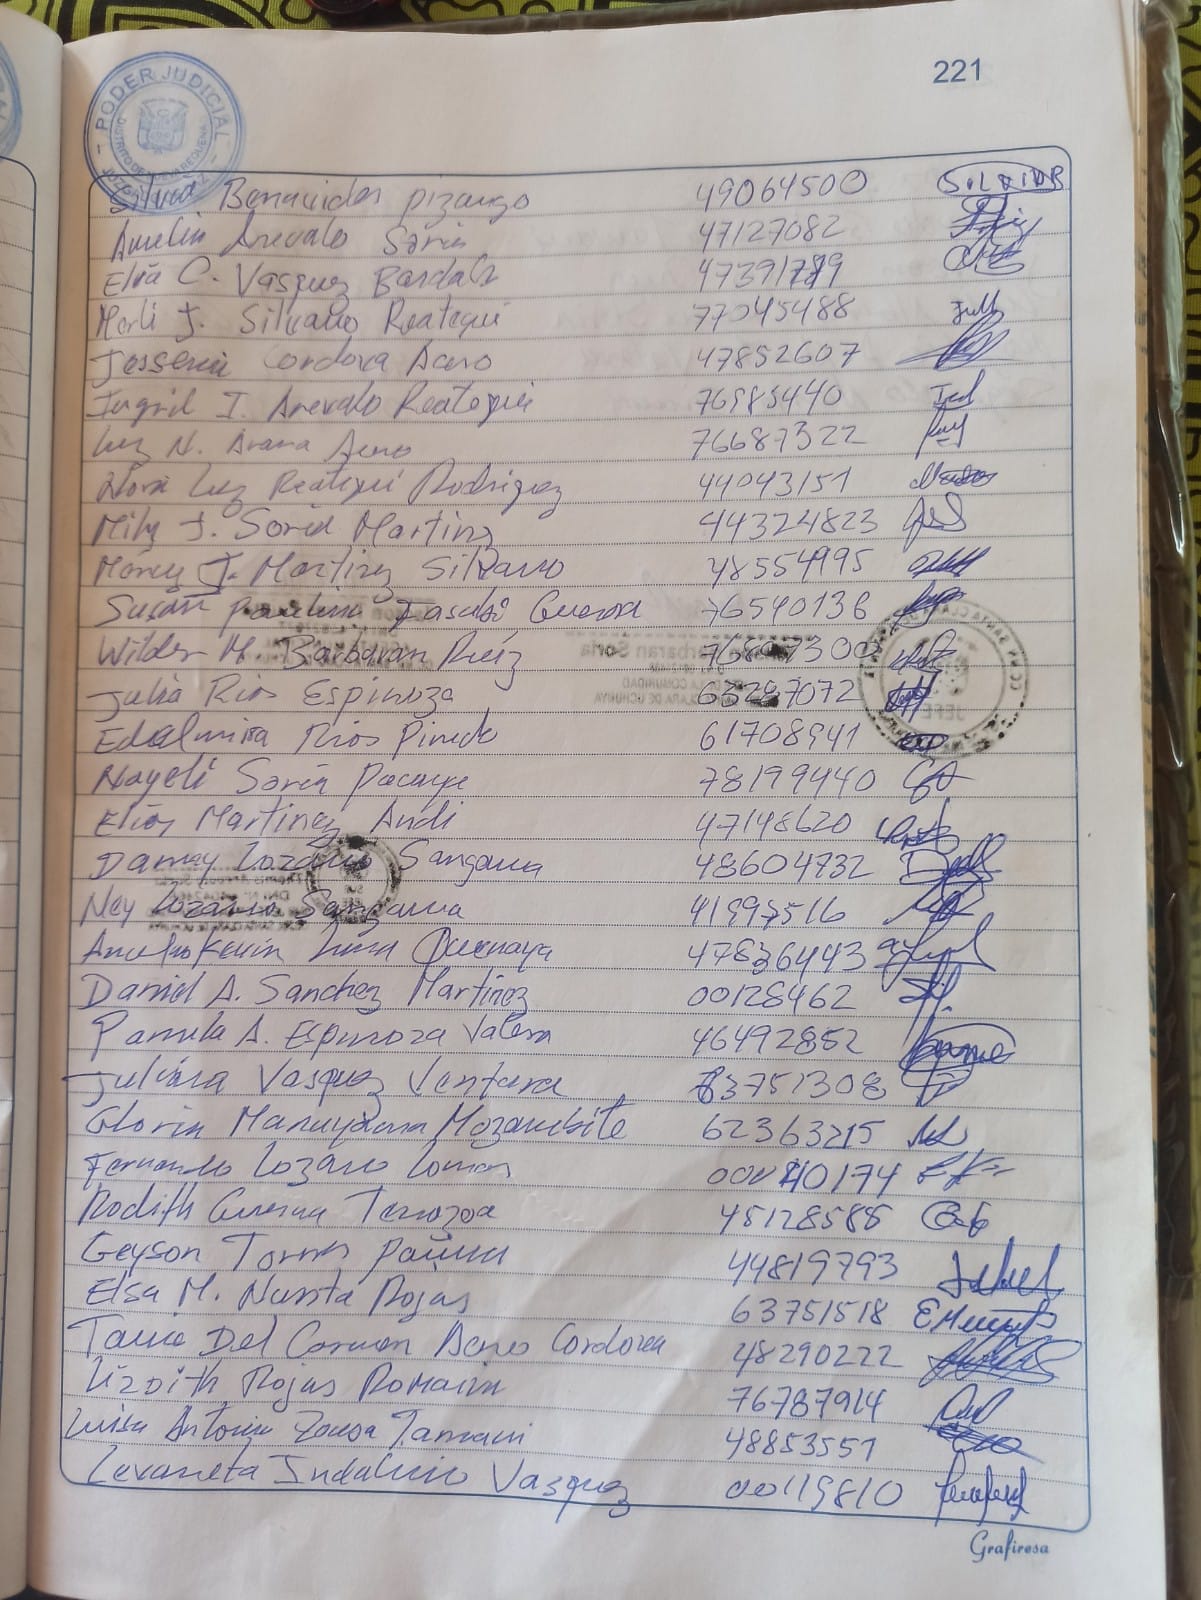 221
PODER JUDICIAL
Silvia Benavides Pizango 49064500 SILVIAB
Aurelia Arevalo Soria 47127082
Elva C. Vasquez Bardalz 47391789
Merli J. Silvano Reategui 77045488
Jessenia Cordova Acero 47852607
Ingrid I. Arevalo Reategui 76985440
Luz N. Arana Acero 76687322
Nora Luz Reategui Rodriguez 44043151
Mily J. Soria Martinz 44324823
Marcy J. Martinez Silvano 48554995
Susan Paulina Pasabi Guerra 76540138
Wilder M. Barbaran Ruiz
Julia Rios Espinoza 63287072
Edelmira Rios Pinedo 61708941
Nayeli Soria Pacaya 78199440
Elios Martinez Andi 47148620
Damay Lozano Sangama 48604732
Ney Lozano Sangama 41997516
Kevin 47836443
Daniel A. Sanchez Martinez 00128462
Pamela A. Espinoza Valera 46492852
Juliana Vasquez Ventura 63751308
Gloria Manuyama Mozambite 62363215
Fernando Lozano Lomas
Rodith Guerra Terrozoa 45128588
Geyson Torres Paima 44819793
Elsa M. Nunta Rojas 63751518
Tania Del Carmen Acero Cordova 48290222
Lizdith Rojas Romaina 76787914
Luisa Antonia Tamani 48853551
Levaneta Indalicio Vasquez 00119810
Grafiresa